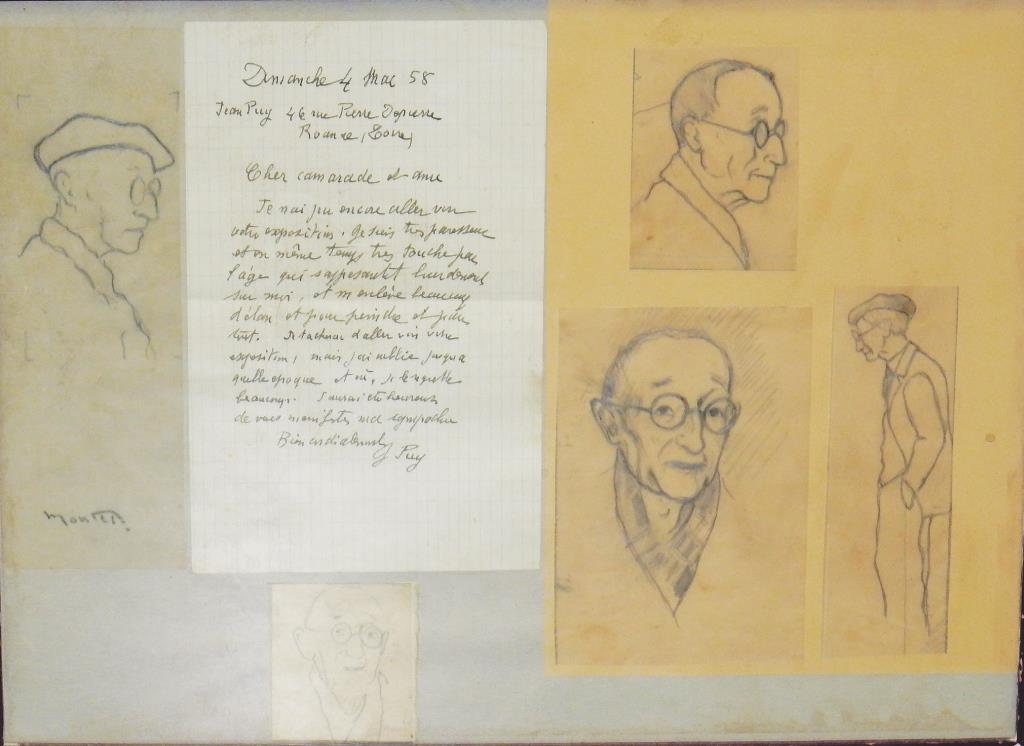 Dimanche 4 Mai 58
Jean Puy 46 rue Pierre Depierre
Roanne, (Loire)
Cher camarade et ami
Je n'ai pu encore aller voir
votre exposition. Je suis très paresseux
et en même temps très touché par
l'âge qui s'appesantit lourdement
sur moi, et m'enlève beaucoup
d'élan et pour peindre et pour
tout. Je tacherai d'aller voir votre
exposition, mais j'ai oublié jusqu'à
quelle époque et où, je le regrette
beaucoup. J'aurai été heureux
de vous manifester ma sympathie
Bien cordialement
J Puy